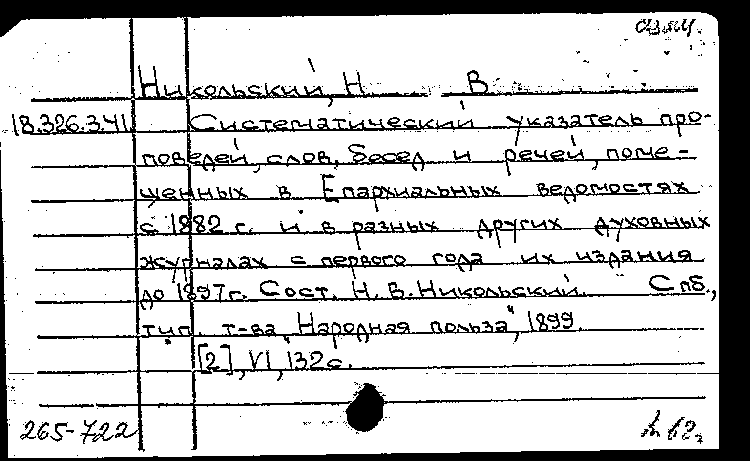 Никольский, Н. В.
18.326.3.41. Систематический указатель про-
поведей, слов, бесед и речей, поме-
щенных в Епархиальных ведомостях
с 1882 г. и в разных других духовных
журналах с первого года их издания
до 1897 г. Сост. Н. В. Никольский. Спб.,
тип. т-ва "Народная польза", 1899.
[2], VI, 132 с.
265-722